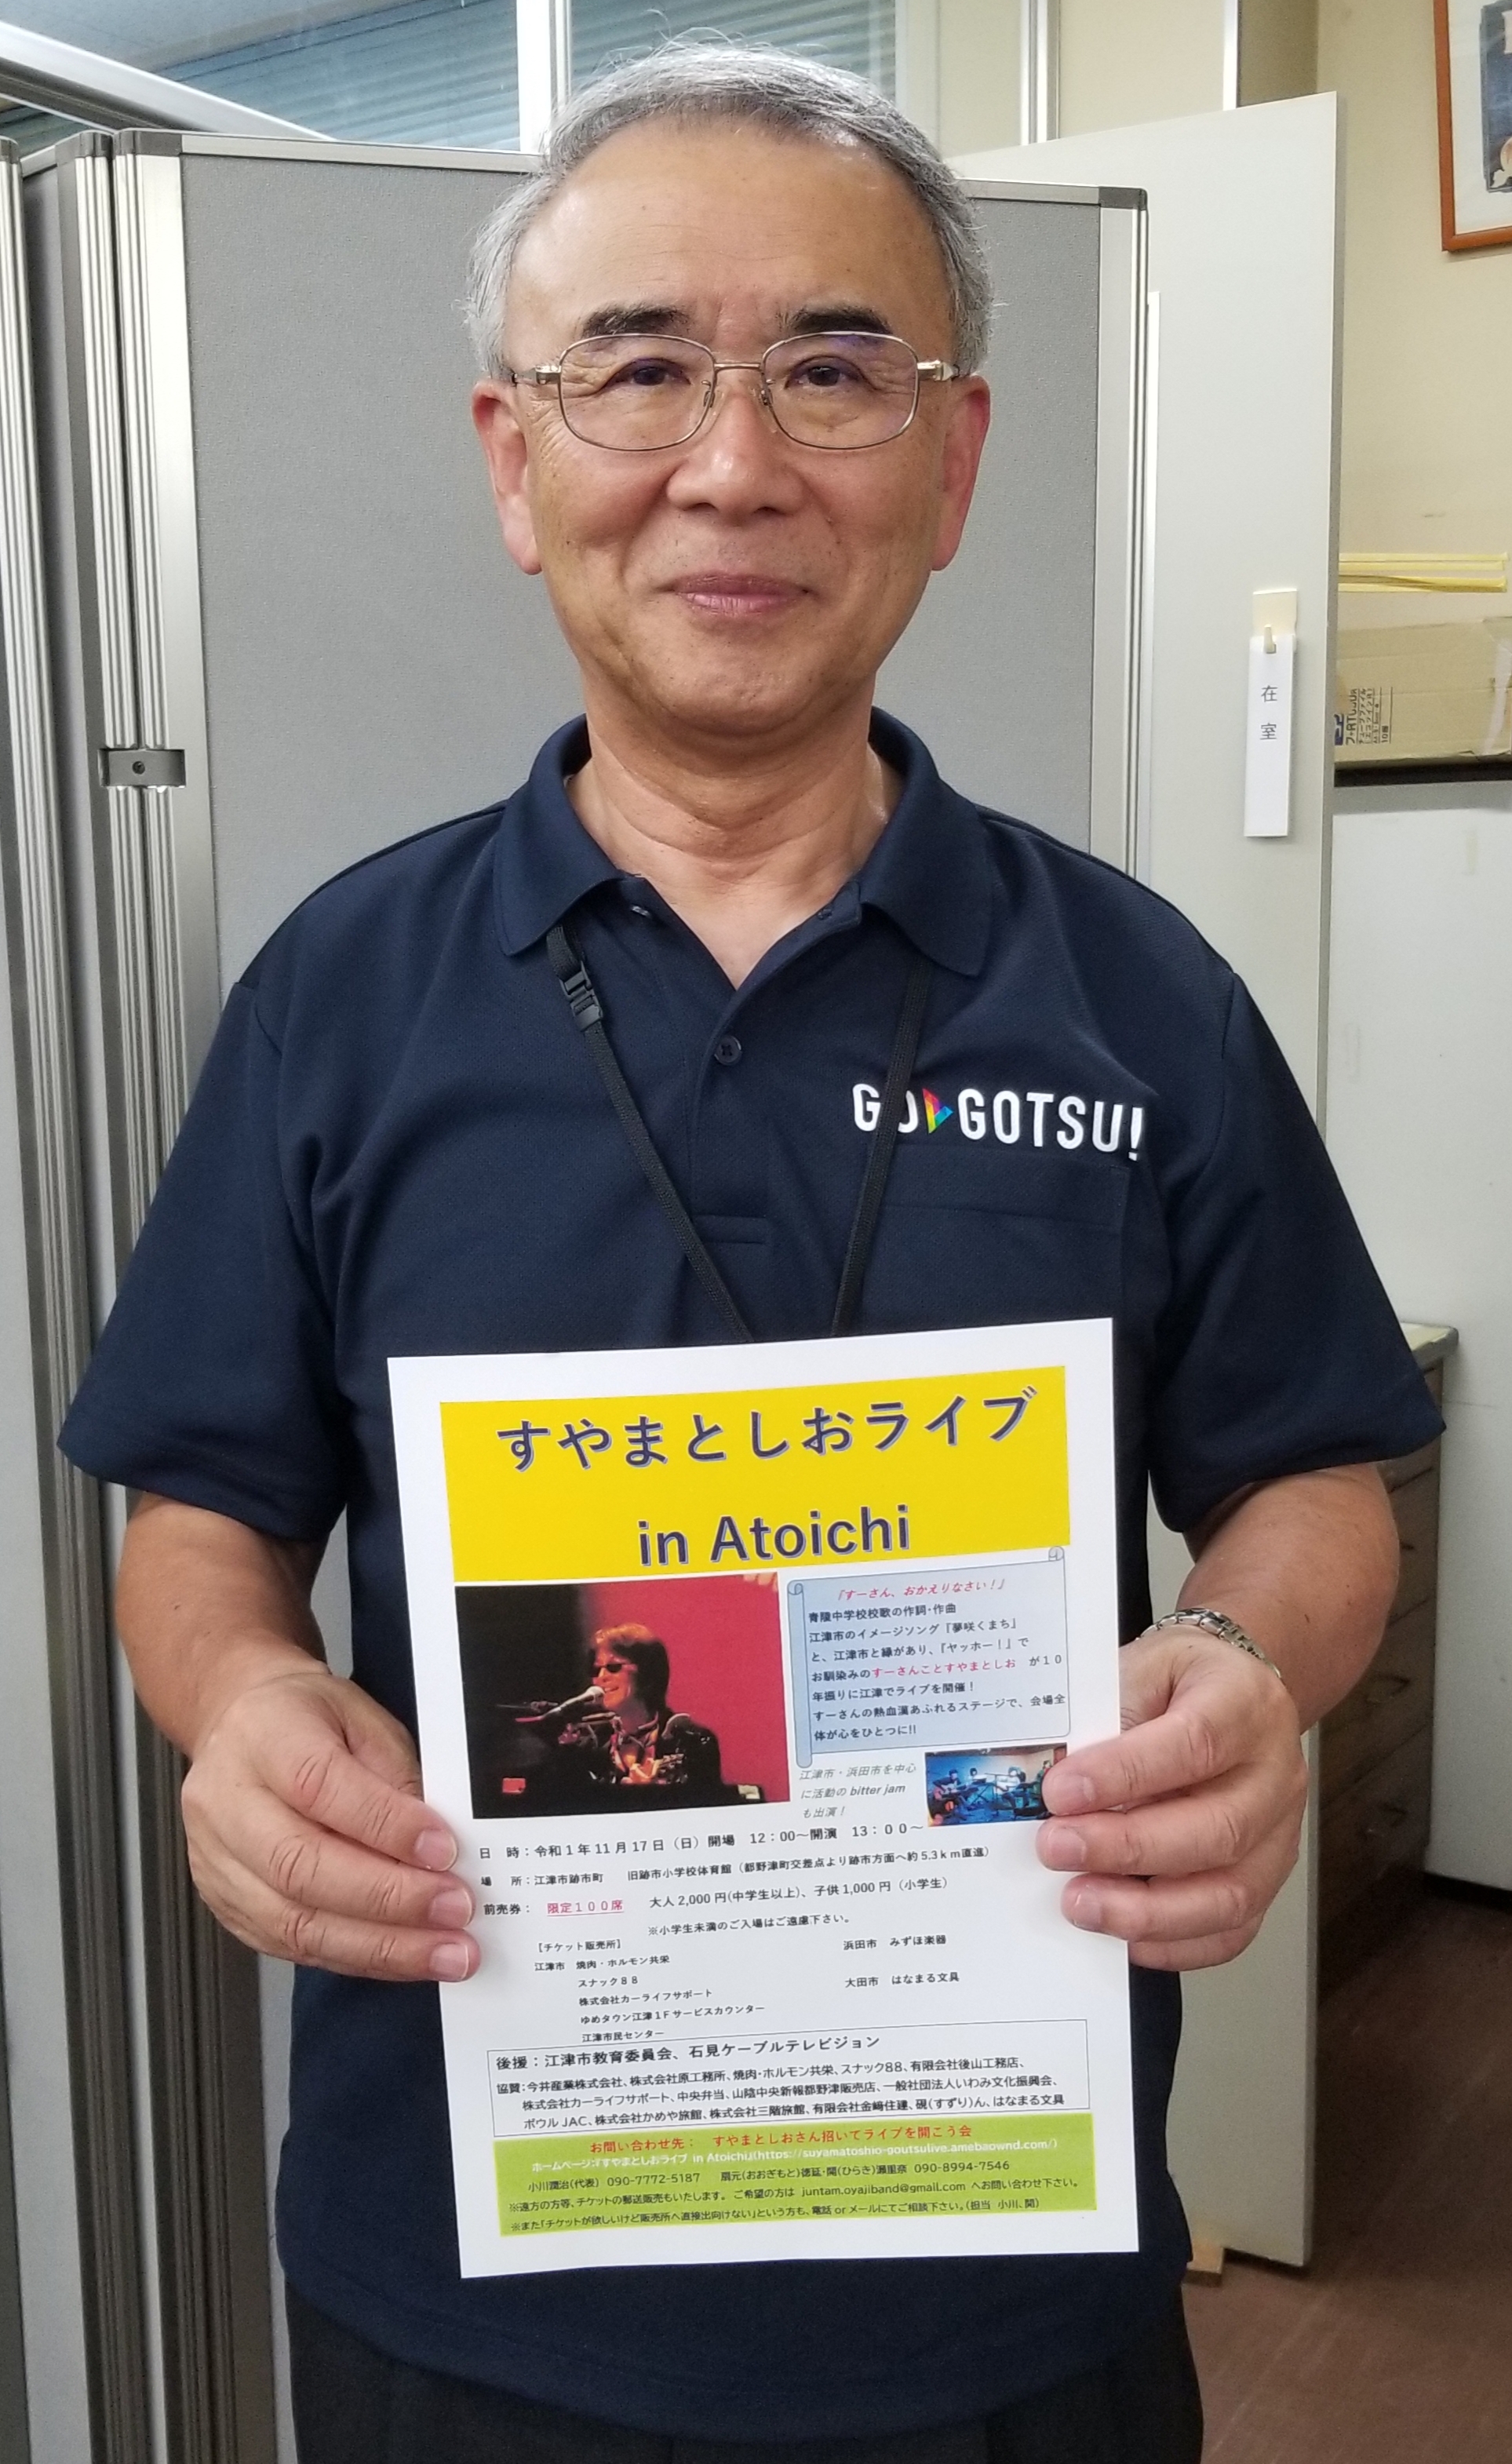 在室
GO GOTSU!
すやまとしおライブ
in Atoichi
『すーさん、おかえりなさい！』
青陵中学校校歌の作詞・作曲
江津市のイメージソング「夢咲くまち」
と、江津市と縁があり、『ヤッホー！』で
お馴染みのすーさんことすやまとしお が１０
年振りに江津でライブを開催！
すーさんの熱血漢あふれるステージで、会場全
体が心をひとつに!!
江津市・浜田市を中心
に活動の bitter jam
も出演！
日　時：令和１年 11 月 17 日（日）開場　12：00～開演　13：００～
場　所：江津市跡市町　旧跡市小学校体育館（都野津町交差点より跡市方面へ約 5.3ｋｍ直進）
前売券：　限定１００席　大人 2,000 円(中学生以上)、子供 1,000 円（小学生）
※小学生未満のご入場はご遠慮下さい。
【チケット販売所】
江津市　焼肉・ホルモン共栄
浜田市　みずほ楽器
スナック８８
大田市　はなまる文具
株式会社カーライフサポート
ゆめタウン江津１Ｆサービスカウンター
江津市民センター
後援：江津市教育委員会、石見ケーブルテレビジョン
協賛：今井産業株式会社、株式会社原工務所、焼肉・ホルモン共栄、スナック８８、有限会社後山工務店、
株式会社カーライフサポート、中央弁当、山陰中央新報都野津販売店、一般社団法人いわみ文化振興会、
ボウル JAC、株式会社かめや旅館、株式会社三階旅館、有限会社金﨑住建、硯(すずり)ん、はなまる文具
お問い合わせ先：　すやまとしおさん招いてライブを開こう会
ホームページ:『すやまとしおライブ in Atoichi』(https://suyamatoshio-goutsulive.amebaownd.com/)
小川潤治(代表)　090-7772-5187　扇元(おおぎもと)徳延・開(ひらき)瀬里奈　090-8994-7546
※遠方の方等、チケットの郵送販売もいたします。ご希望の方は juntam.oyajiband@gmail.com へお問い合わせ下さい。
※また「チケットが欲しいけど販売所へ直接出向けない」という方も、電話 or メールにてご相談下さい。(担当　小川、開)